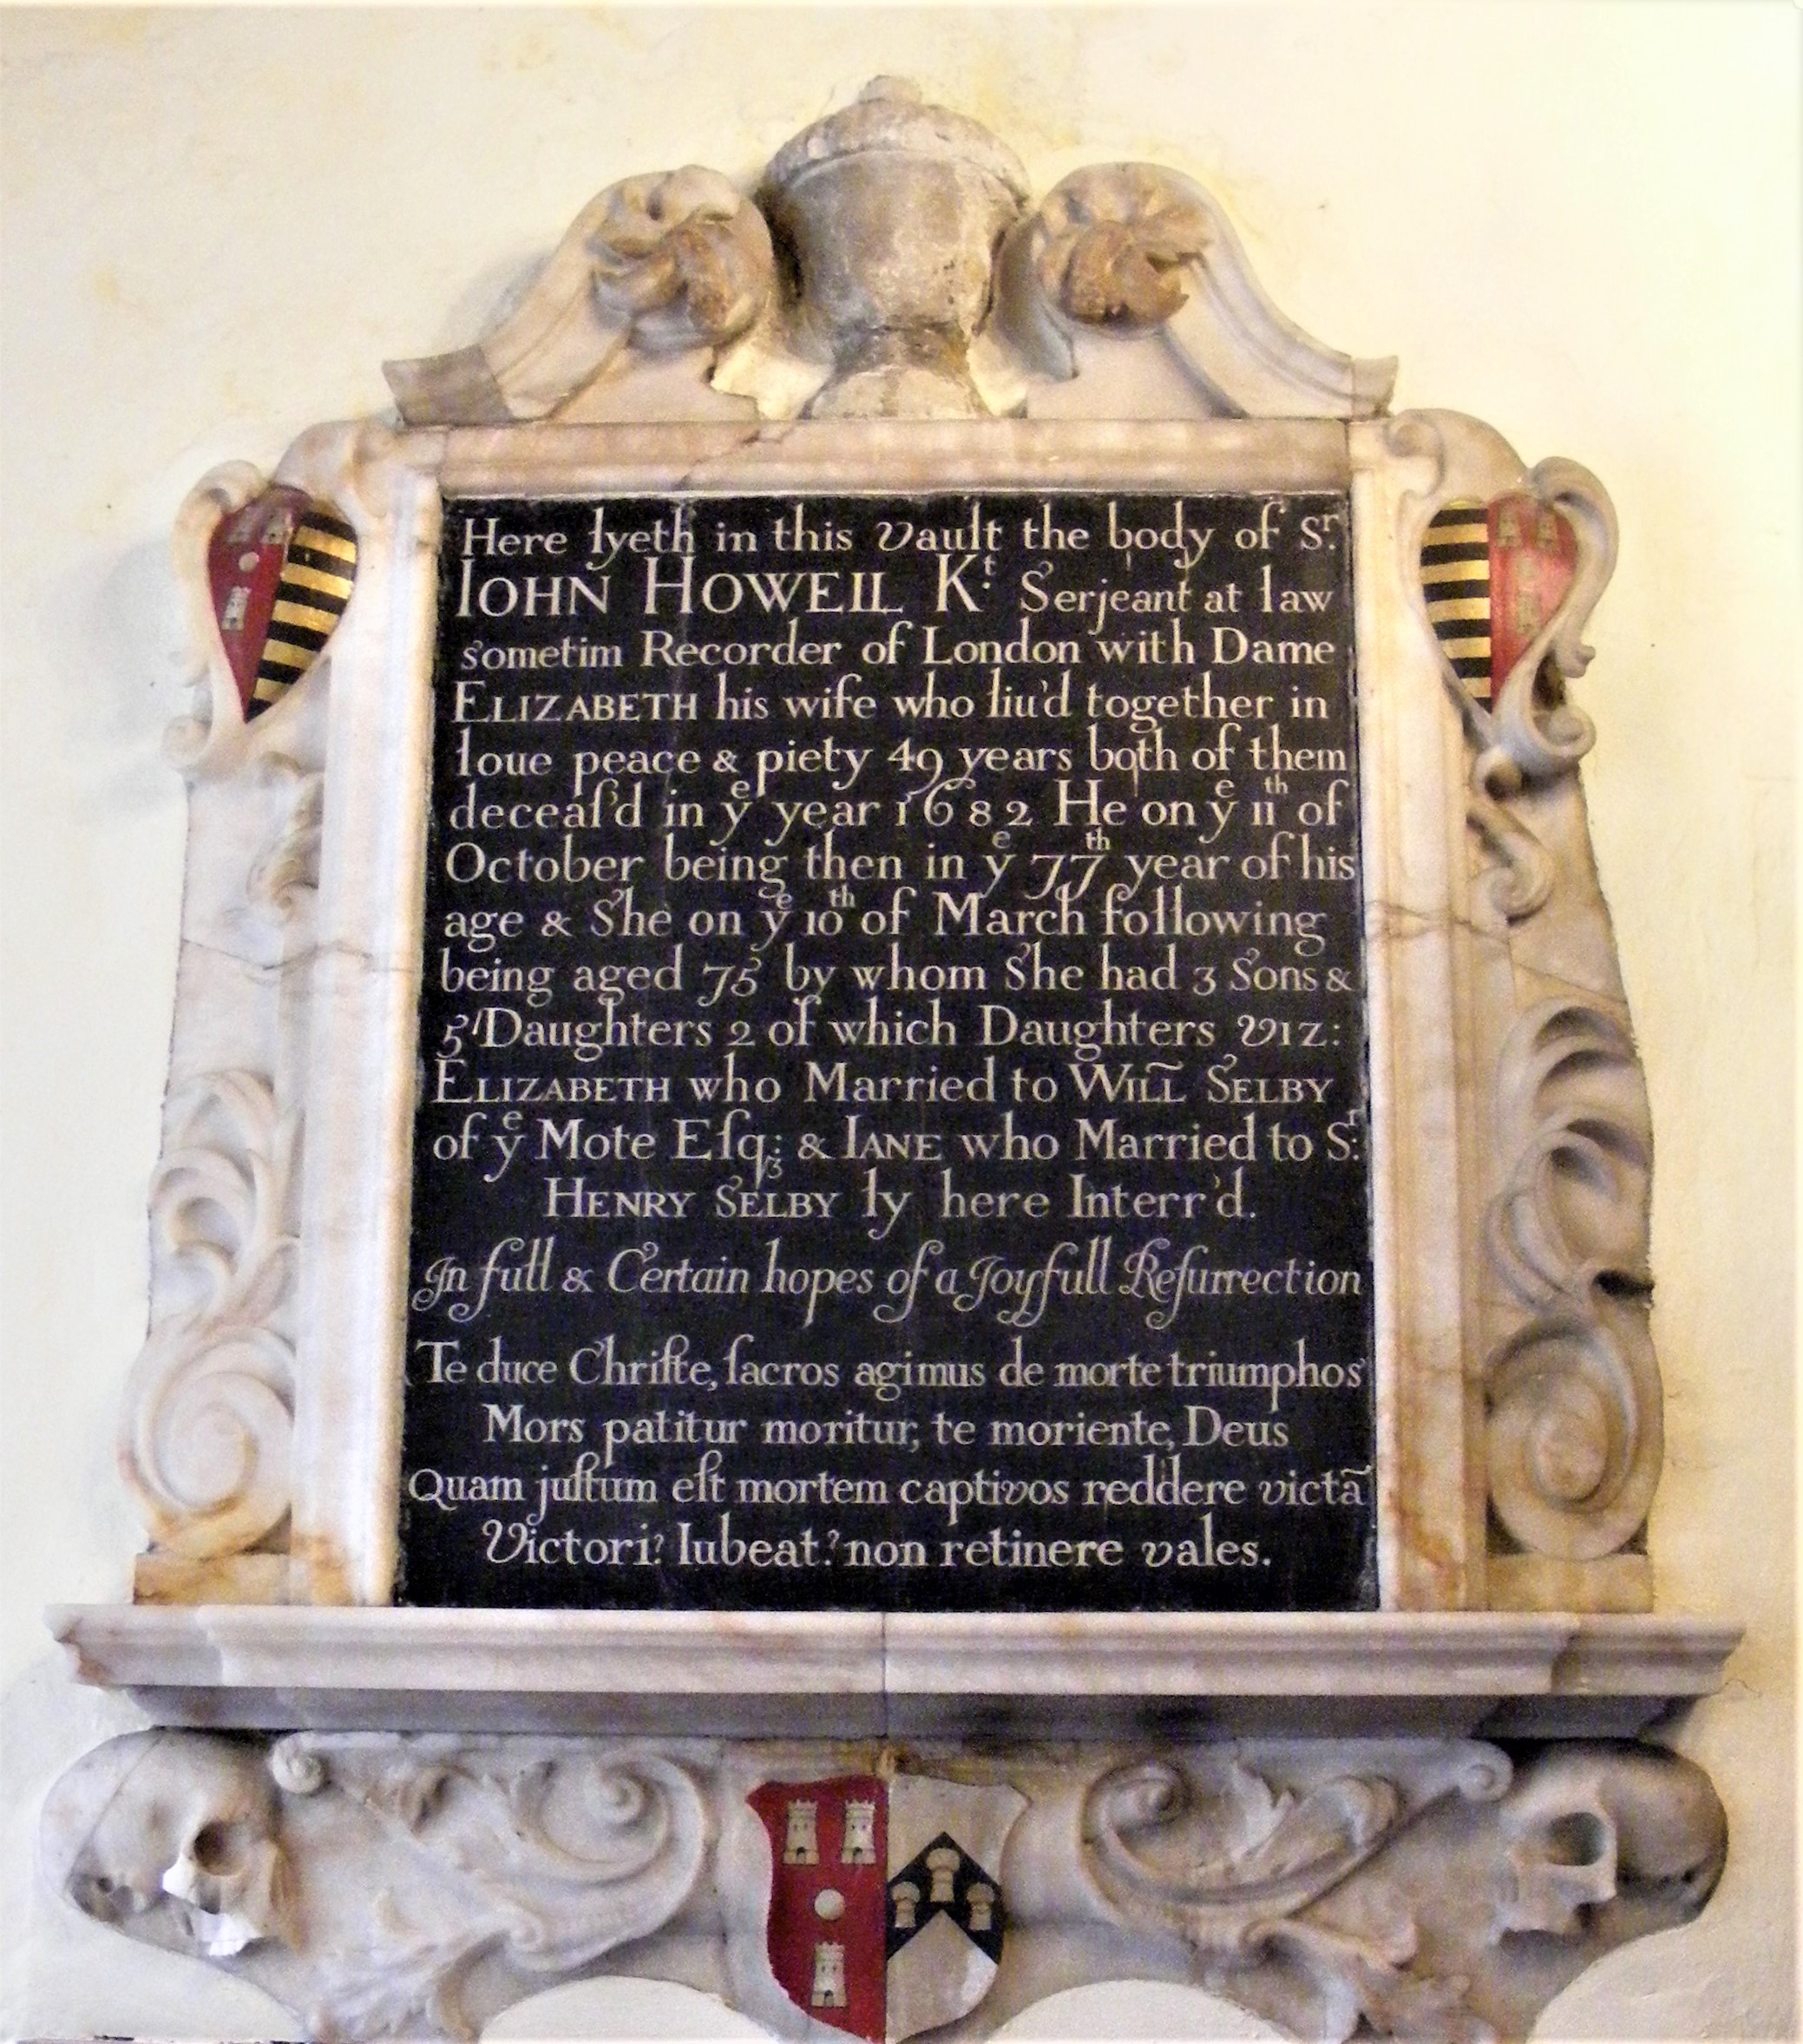 Here lyeth in this Vault the body of Sʳ.
IOHN HOWELL Kᵗ. Serjeant at law
sometim Recorder of London with Dame
ELIZABETH his wife who liu'd together in
loue peace & piety 49 years both of them
deceaſ'd in yᵉ year 1682 He on yᵉ 11ᵗʰ of
October being then in yᵉ 77ᵗʰ year of his
age & She on yᵉ 10ᵗʰ of March following
being aged 75 by whom She had 3 Sons &
5 Daughters 2 of which Daughters VIZ:
ELIZABETH who Married to WILL̃ SELBY
of yᵉ Mote Eſq; & IANE who Married to Sʳ:
HENRY SELBY ly here Interr'd.
In full & Certain hopes of a Joyfull Reſurrection
Te duce Chriſte, ſacros agimus de morte triumphos
Mors patitur moritur, te moriente, Deus
Quam juſtum eſt mortem captivos reddere victã
Victori? Iubeat? non retinere vales.